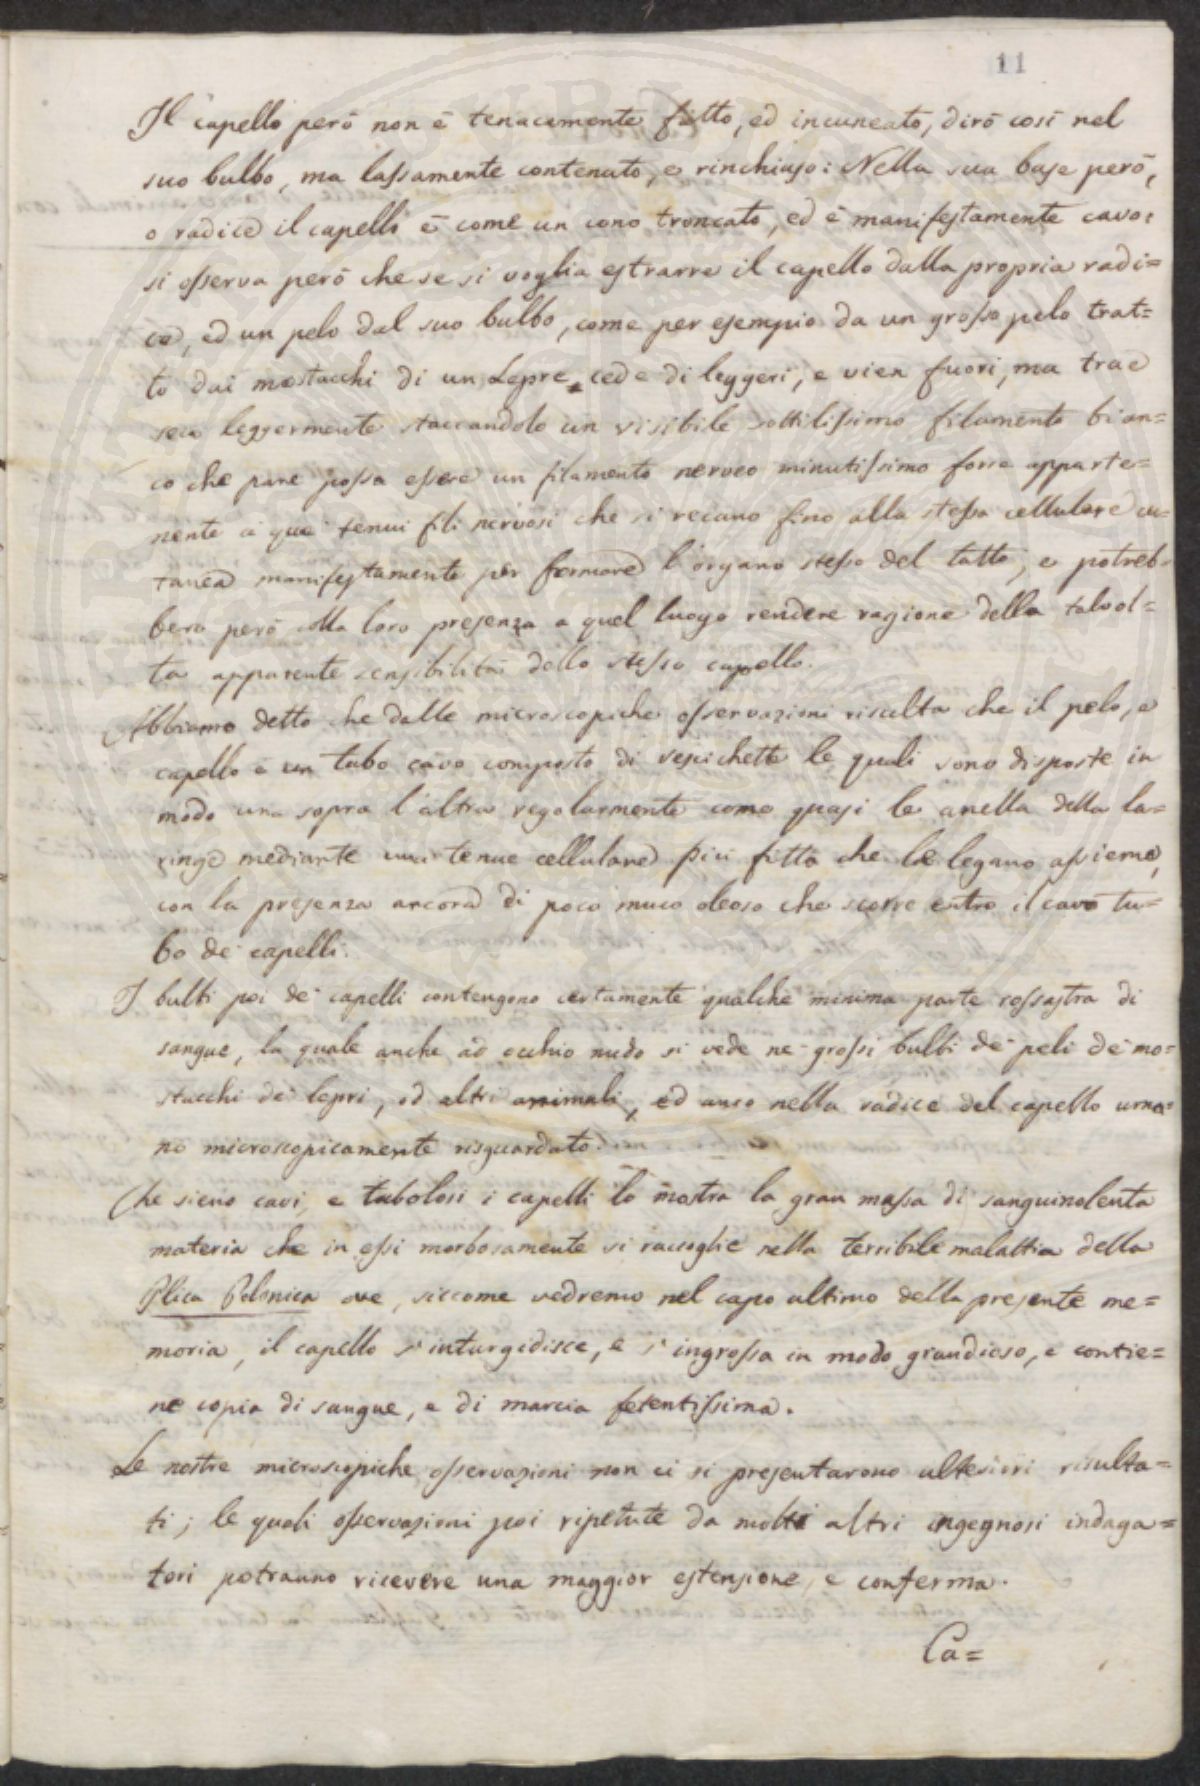 11
Il capello però non è tenacemente fitto, ed incuneato, dirò così nel
suo bulbo, ma lassamente contenuto, e rinchiuso: Nella sua base però,
o radice il capello è come un cono troncato, ed è manifestamente cavo:
si osserva però che se si voglia estrarre il capello dalla propria radi=
ce, ed un pelo dal suo bulbo, come per esempio da un grosso pelo trat=
to dai mostacchi di un Lepre, cede di leggeri, e vien fuori, ma trae
seco leggermente staccandolo un visibile sottilissimo filamento bian=
co che pare possa essere un filamento nerveo minutissimo forse apparte=
nente a que' tenui fili nervosi che si recano fino alla stessa cellulare cu=
tanea manifestamente per formare l'organo stesso del tatto, e potreb=
bero però alla loro presenza a quel luogo rendere ragione della talvol=
ta apparente sensibilità dello stesso capello.
Abbiamo detto che dalle microscopiche osservazioni risulta che il pelo, e
capello è un tubo cavo composto di vescichette le quali sono disposte in
modo una sopra l'altra regolarmente come quasi le anella della la=
ringe mediante una tenue cellulare più fitta che le legano assieme,
con la presenza ancora di poco muco oleoso che scorre entro il cavo tu=
bo de' capelli.
I bulbi poi de' capelli contengono certamente qualche minima parte rossastra di
sangue, la quale anche ad occhio nudo si vede ne' grossi bulbi de' peli de' mo=
stacchi dei lepri, ed altri animali, ed anco nella radice del capello uma=
no microscopicamente risguardato.
Che sieno cavi, e tubolosi i capelli lo mostra la gran massa di sanguinolenta
materia che in essi morbosamente si raccoglie nella terribile malattia della
Plica Polonica ove, siccome vedremo nel capo ultimo della presente me=
moria, il capello s'inturgidisce, e s'ingrossa in modo grandioso, e contie=
ne copia di sangue, e di marcia fetentissima.
Le nostre microscopiche osservazioni non ci si presentarono ulteriori risulta=
ti; le quali osservazioni poi ripetute da molti altri ingegnosi indaga=
tori potranno ricevere una maggior estensione, e conferma.
Ca=